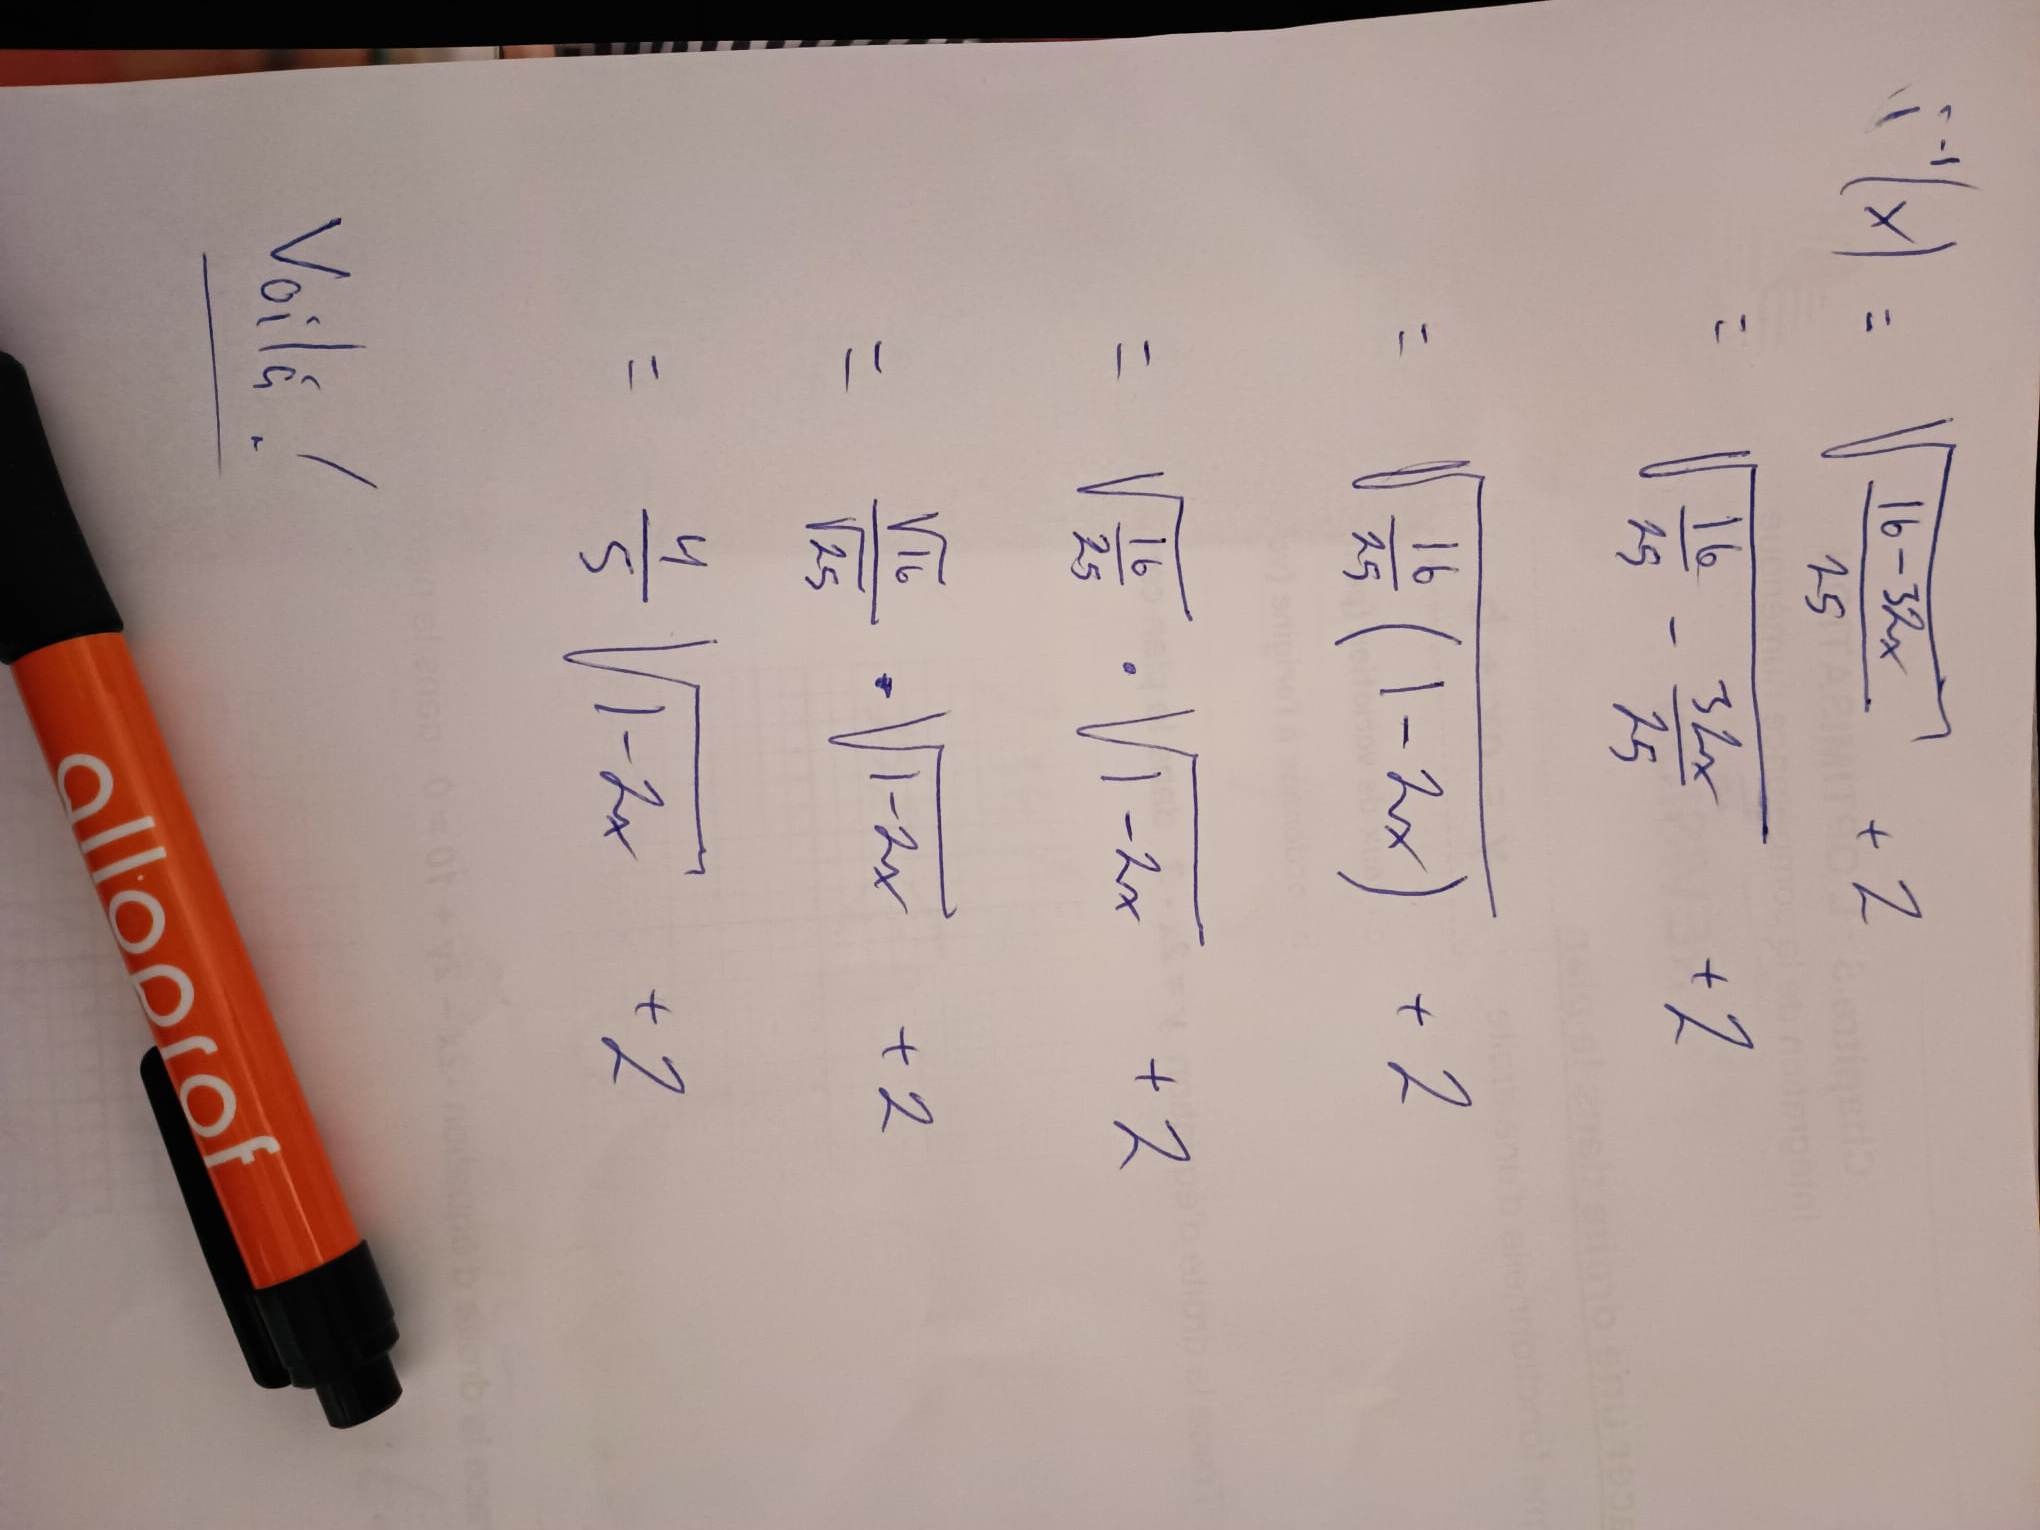 i⁻¹(x) = √((16-32x)/25) + 2
= √(16/25 - 32x/25) + 2
= √(16/25 (1-2x)) + 2
= √(16/25) · √(1-2x) + 2
= √16/√25 · √(1-2x) + 2
= 4/5 √(1-2x) + 2
Voilà !
alloprof